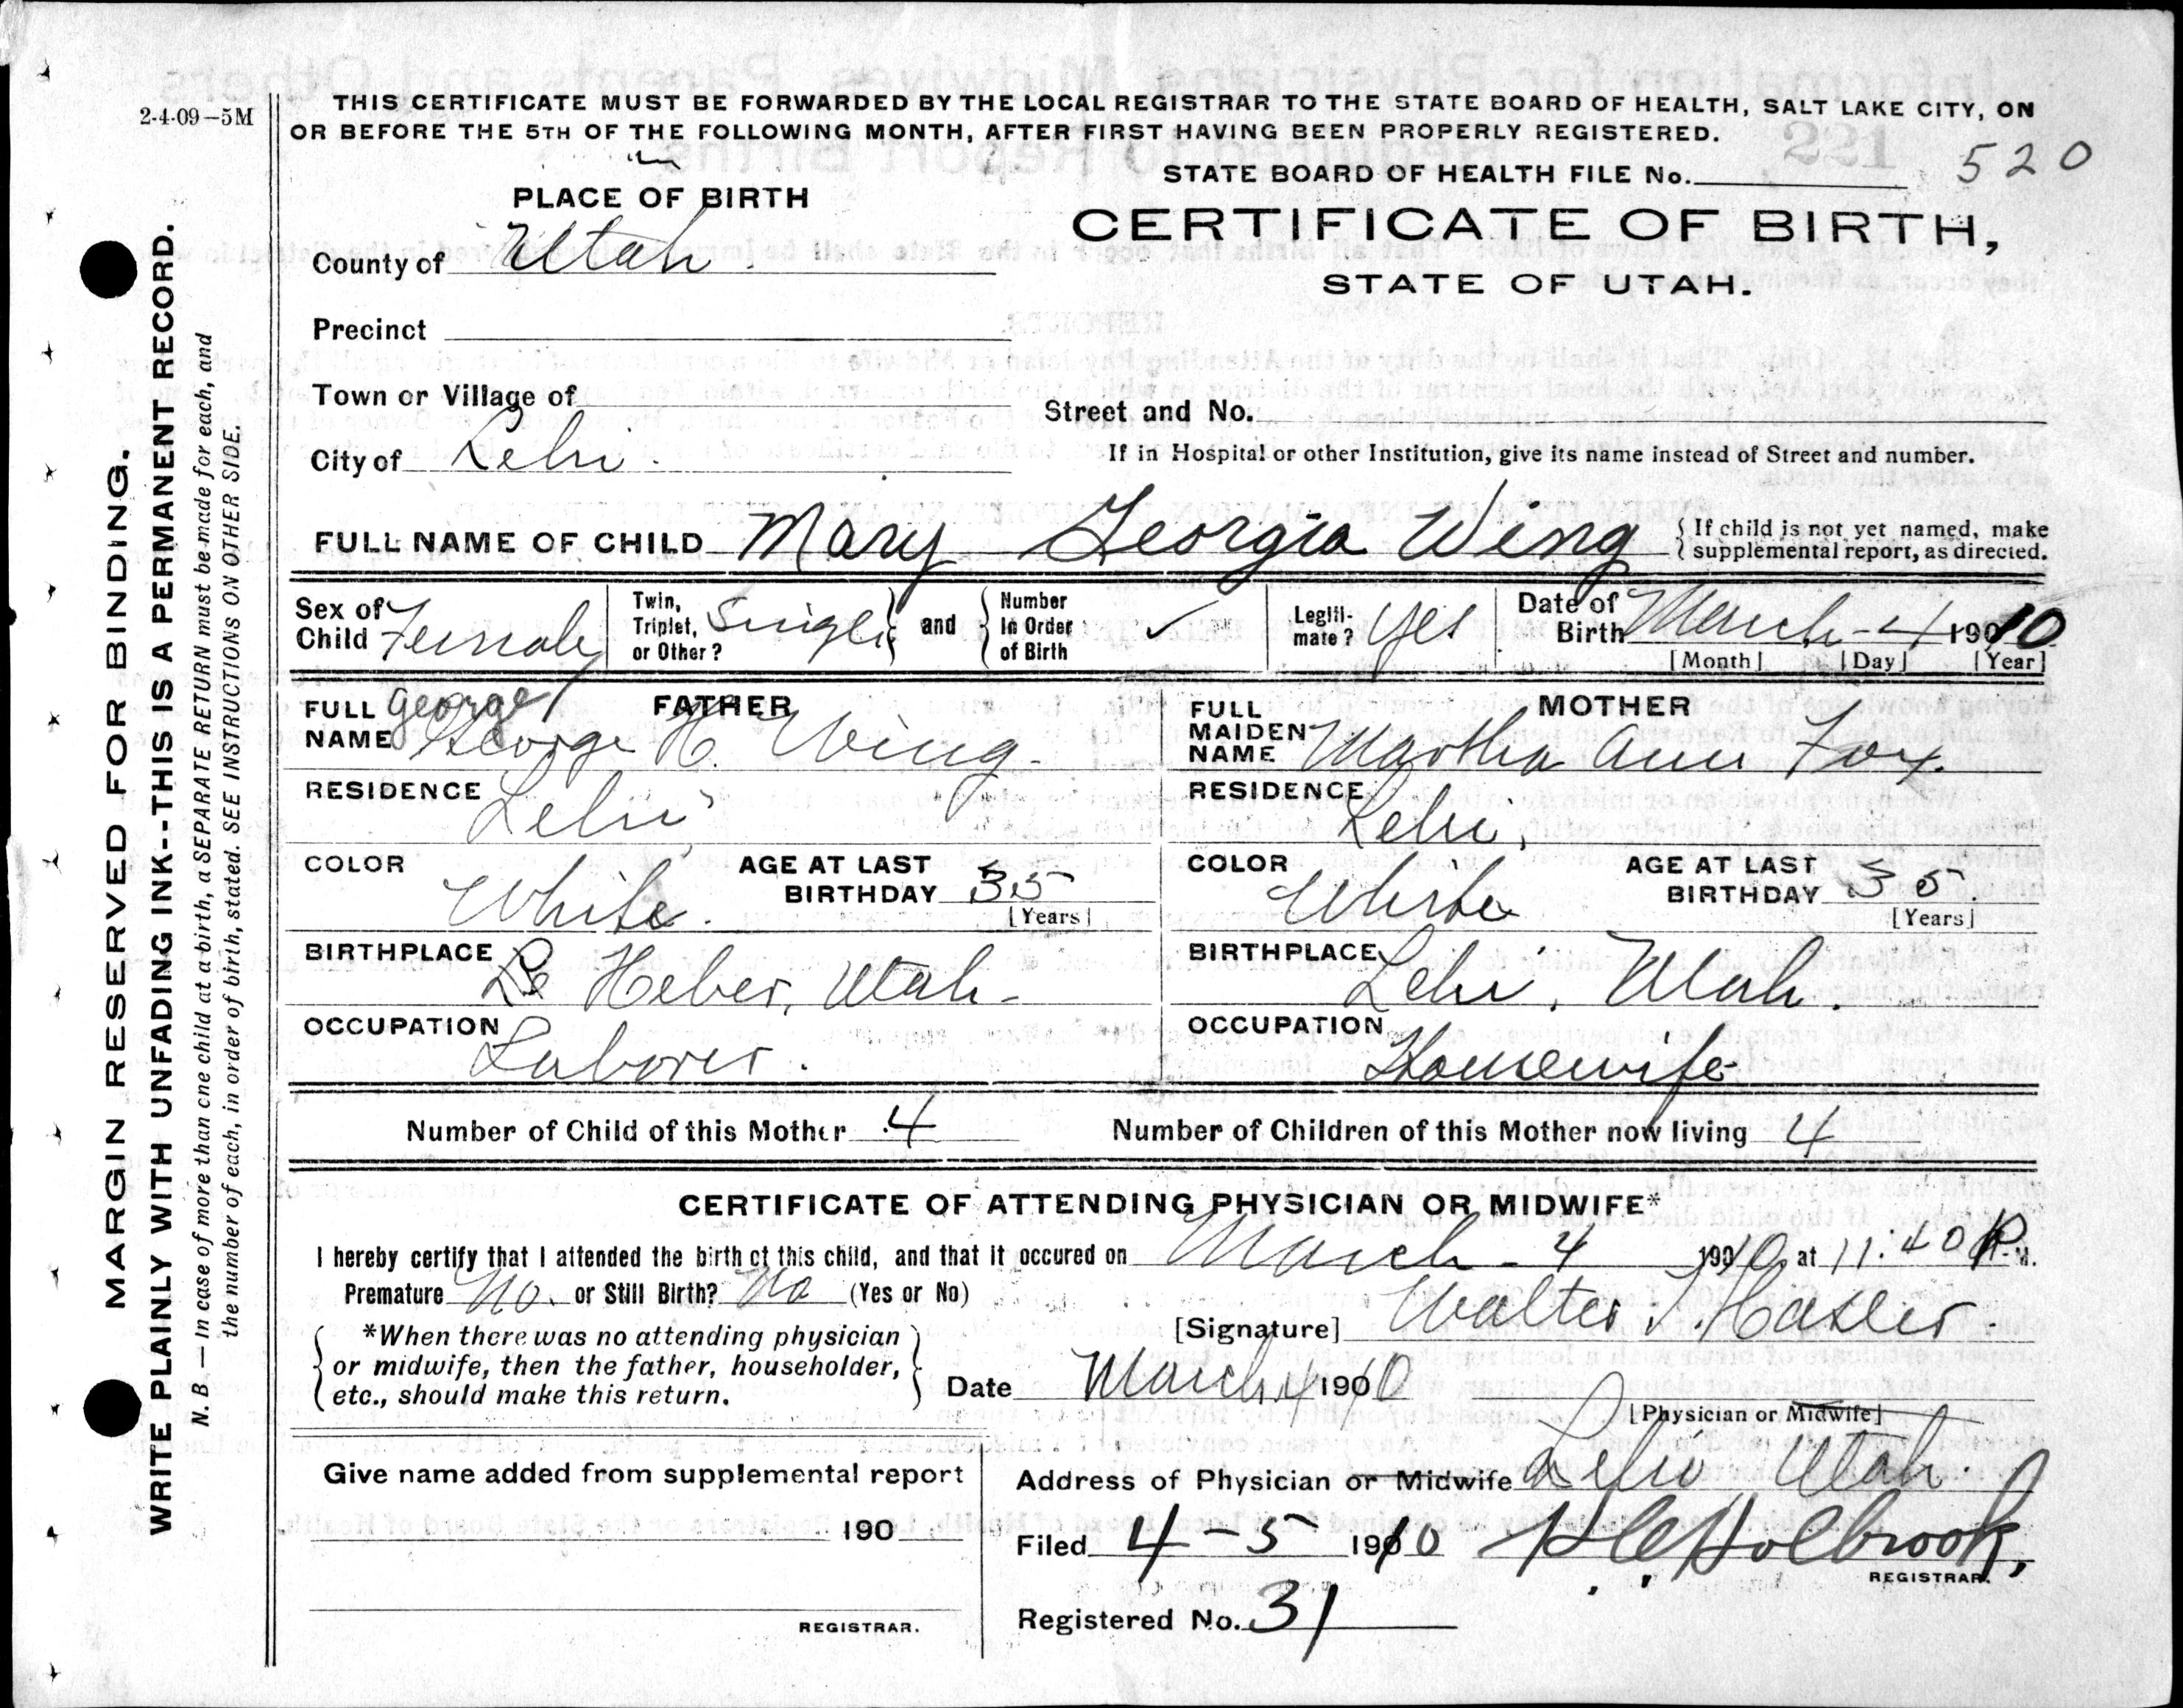 2-4-09-5M
THIS CERTIFICATE MUST BE FORWARDED BY THE LOCAL REGISTRAR TO THE STATE BOARD OF HEALTH, SALT LAKE CITY, ON
OR BEFORE THE 5TH OF THE FOLLOWING MONTH, AFTER FIRST HAVING BEEN PROPERLY REGISTERED.
221
STATE BOARD OF HEALTH FILE No. 520
PLACE OF BIRTH
CERTIFICATE OF BIRTH,
STATE OF UTAH.
County of Utah.
Precinct
Town or Village of
Street and No.
City of Lehi.
If in Hospital or other Institution, give its name instead of Street and number.
FULL NAME OF CHILD Mary Georgia Wing { If child is not yet named, make
supplemental report, as directed.
Sex of Child Female
Twin, Triplet, or Other? Single and { Number In Order of Birth ✓
Legitimate? Yes
Date of Birth March - 4 - 1910
[Month] [Day] [Year]
FATHER
FULL NAME George
George H. Wing.
RESIDENCE Lehi
COLOR White. AGE AT LAST BIRTHDAY 35
[Years]
BIRTHPLACE Le Heber, Utah-
OCCUPATION Laborer.
MOTHER
FULL MAIDEN NAME Martha Ann Fox.
RESIDENCE Lehi,
COLOR White AGE AT LAST BIRTHDAY 35.
[Years]
BIRTHPLACE Lehi, Utah.
OCCUPATION Housewife-
Number of Child of this Mother 4 Number of Children of this Mother now living 4
CERTIFICATE OF ATTENDING PHYSICIAN OR MIDWIFE*
I hereby certify that I attended the birth of this child, and that it occured on March - 4 1910, at 11:40 P. M.
Premature No. or Still Birth? No (Yes or No)
*When there was no attending physician
or midwife, then the father, householder,
etc., should make this return.
[Signature] Walter T. Hasler.
Date March 4 1910
[Physician or Midwife]
Give name added from supplemental report
190
REGISTRAR.
Address of Physician or Midwife Lehi Utah.
Filed 4-5 1910 Holbrook,
REGISTRAR.
Registered No. 31
MARGIN RESERVED FOR BINDING.
WRITE PLAINLY WITH UNFADING INK--THIS IS A PERMANENT RECORD.
N. B. — In case of more than one child at a birth, a SEPARATE RETURN must be made for each, and
the number of each, in order of birth, stated. SEE INSTRUCTIONS ON OTHER SIDE.